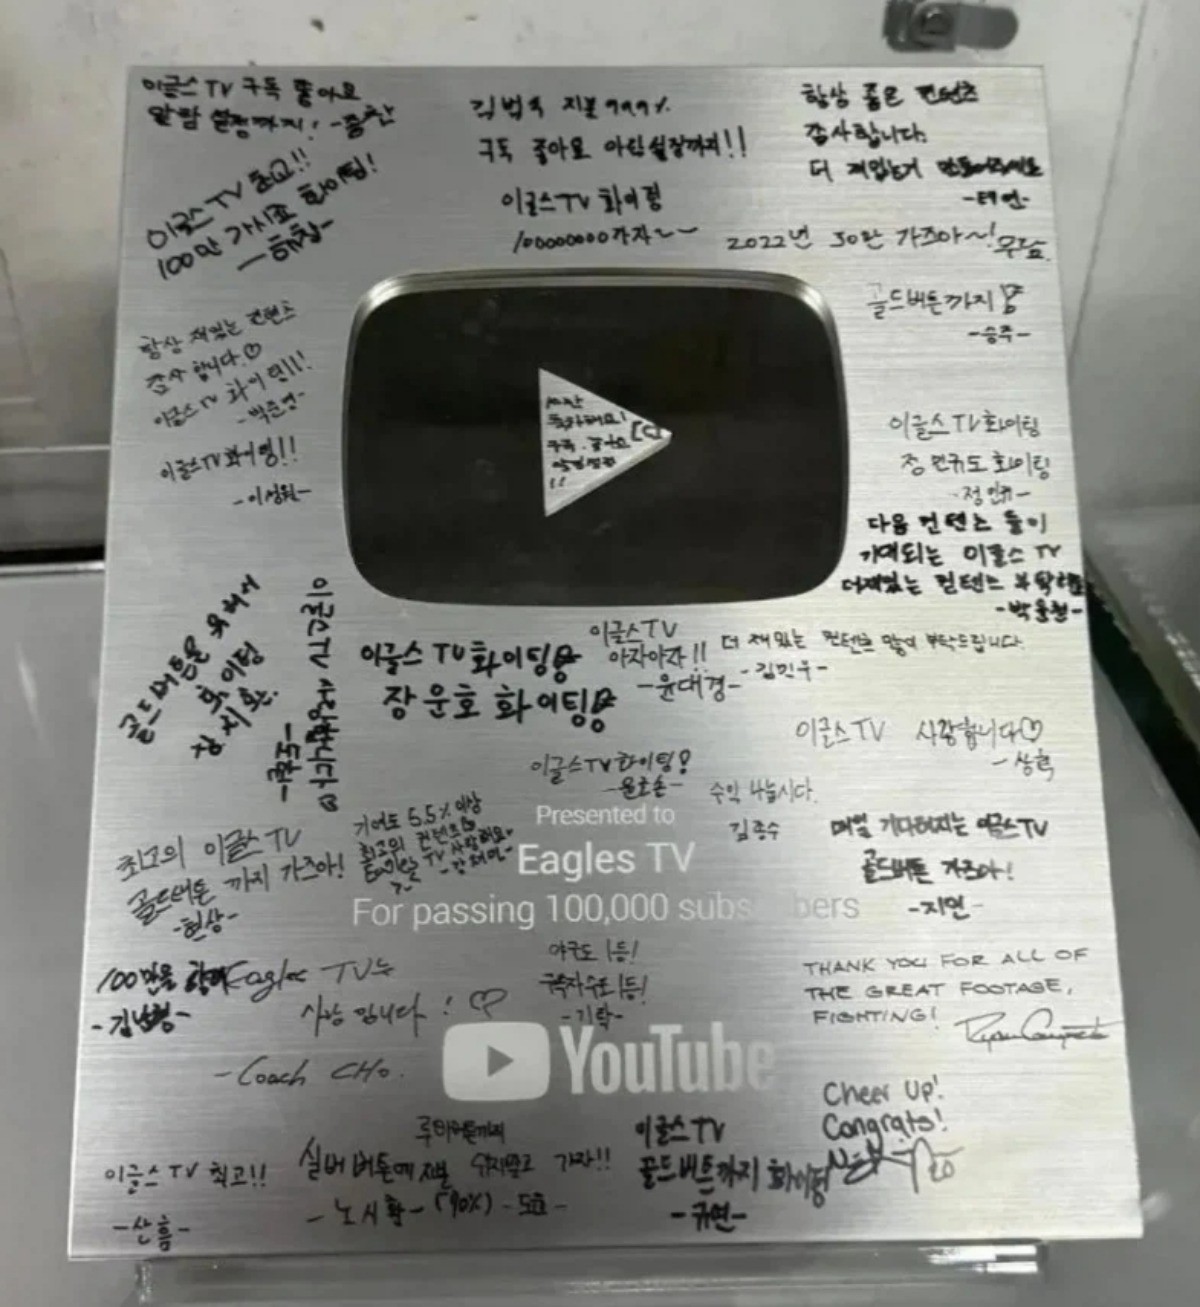 이글스TV 구독 좋아요
알람 설정까지!
이글스TV 최고!!
100만 가시죠 화이팅!
김범수 지분 999%
구독 좋아요 알림설정까지!!
이글스TV 화이팅
100000000가자~~
항상 좋은 컨텐츠
감사합니다.
더 재밌는거
-태연-
2022년 30만 가즈아~!
골드버튼까지
-승주-
항상 재밌는 컨텐츠
감사합니다.♡
이글스TV 화이팅!!!
-박준영-
이글스TV화이팅!!
-이성원-
이글스TV화이팅
정민규도 화이팅
-정민규-
다음 컨텐츠 들이
기대되는 이글스 TV
더재밌는 컨텐츠
골드버튼을 위하여
화이팅
장시환.
이글스TV
아자아자!!
-윤대경-
더 재밌는 컨텐츠 많이 부탁드립니다.
-김민우-
이글스TV화이팅
장운호 화이팅
이글스TV 사랑합니다♡
-상혁
이글스TV화이팅!
-윤호솔-
수익 나눕시다.
김종수
Presented to
Eagles TV
For passing 100,000 subscribers
최고의 이글스TV
골드버튼 까지 가즈아!
-현상-
기여도 5.5% 이상
최고의 컨텐츠
매일 기다려지는 이글스TV
골드버튼 가즈아!
-지연-
100만을 향해
-김남형-
Eagles TV는
사랑 입니다 ! ♡
-Coach CHO.
야구도 1등!
구독자수도 1등!
-기탁-
THANK YOU FOR ALL OF
THE GREAT FOOTAGE,
FIGHTING!
YouTube
Cheer Up!
Congrats!
이글스TV 최고!!
-산흠-
루비버튼까지
실버버튼에 지분
가자!!
-노시환- (90%) -도효-
이글스TV
골드버튼까지 화이팅
-규연-